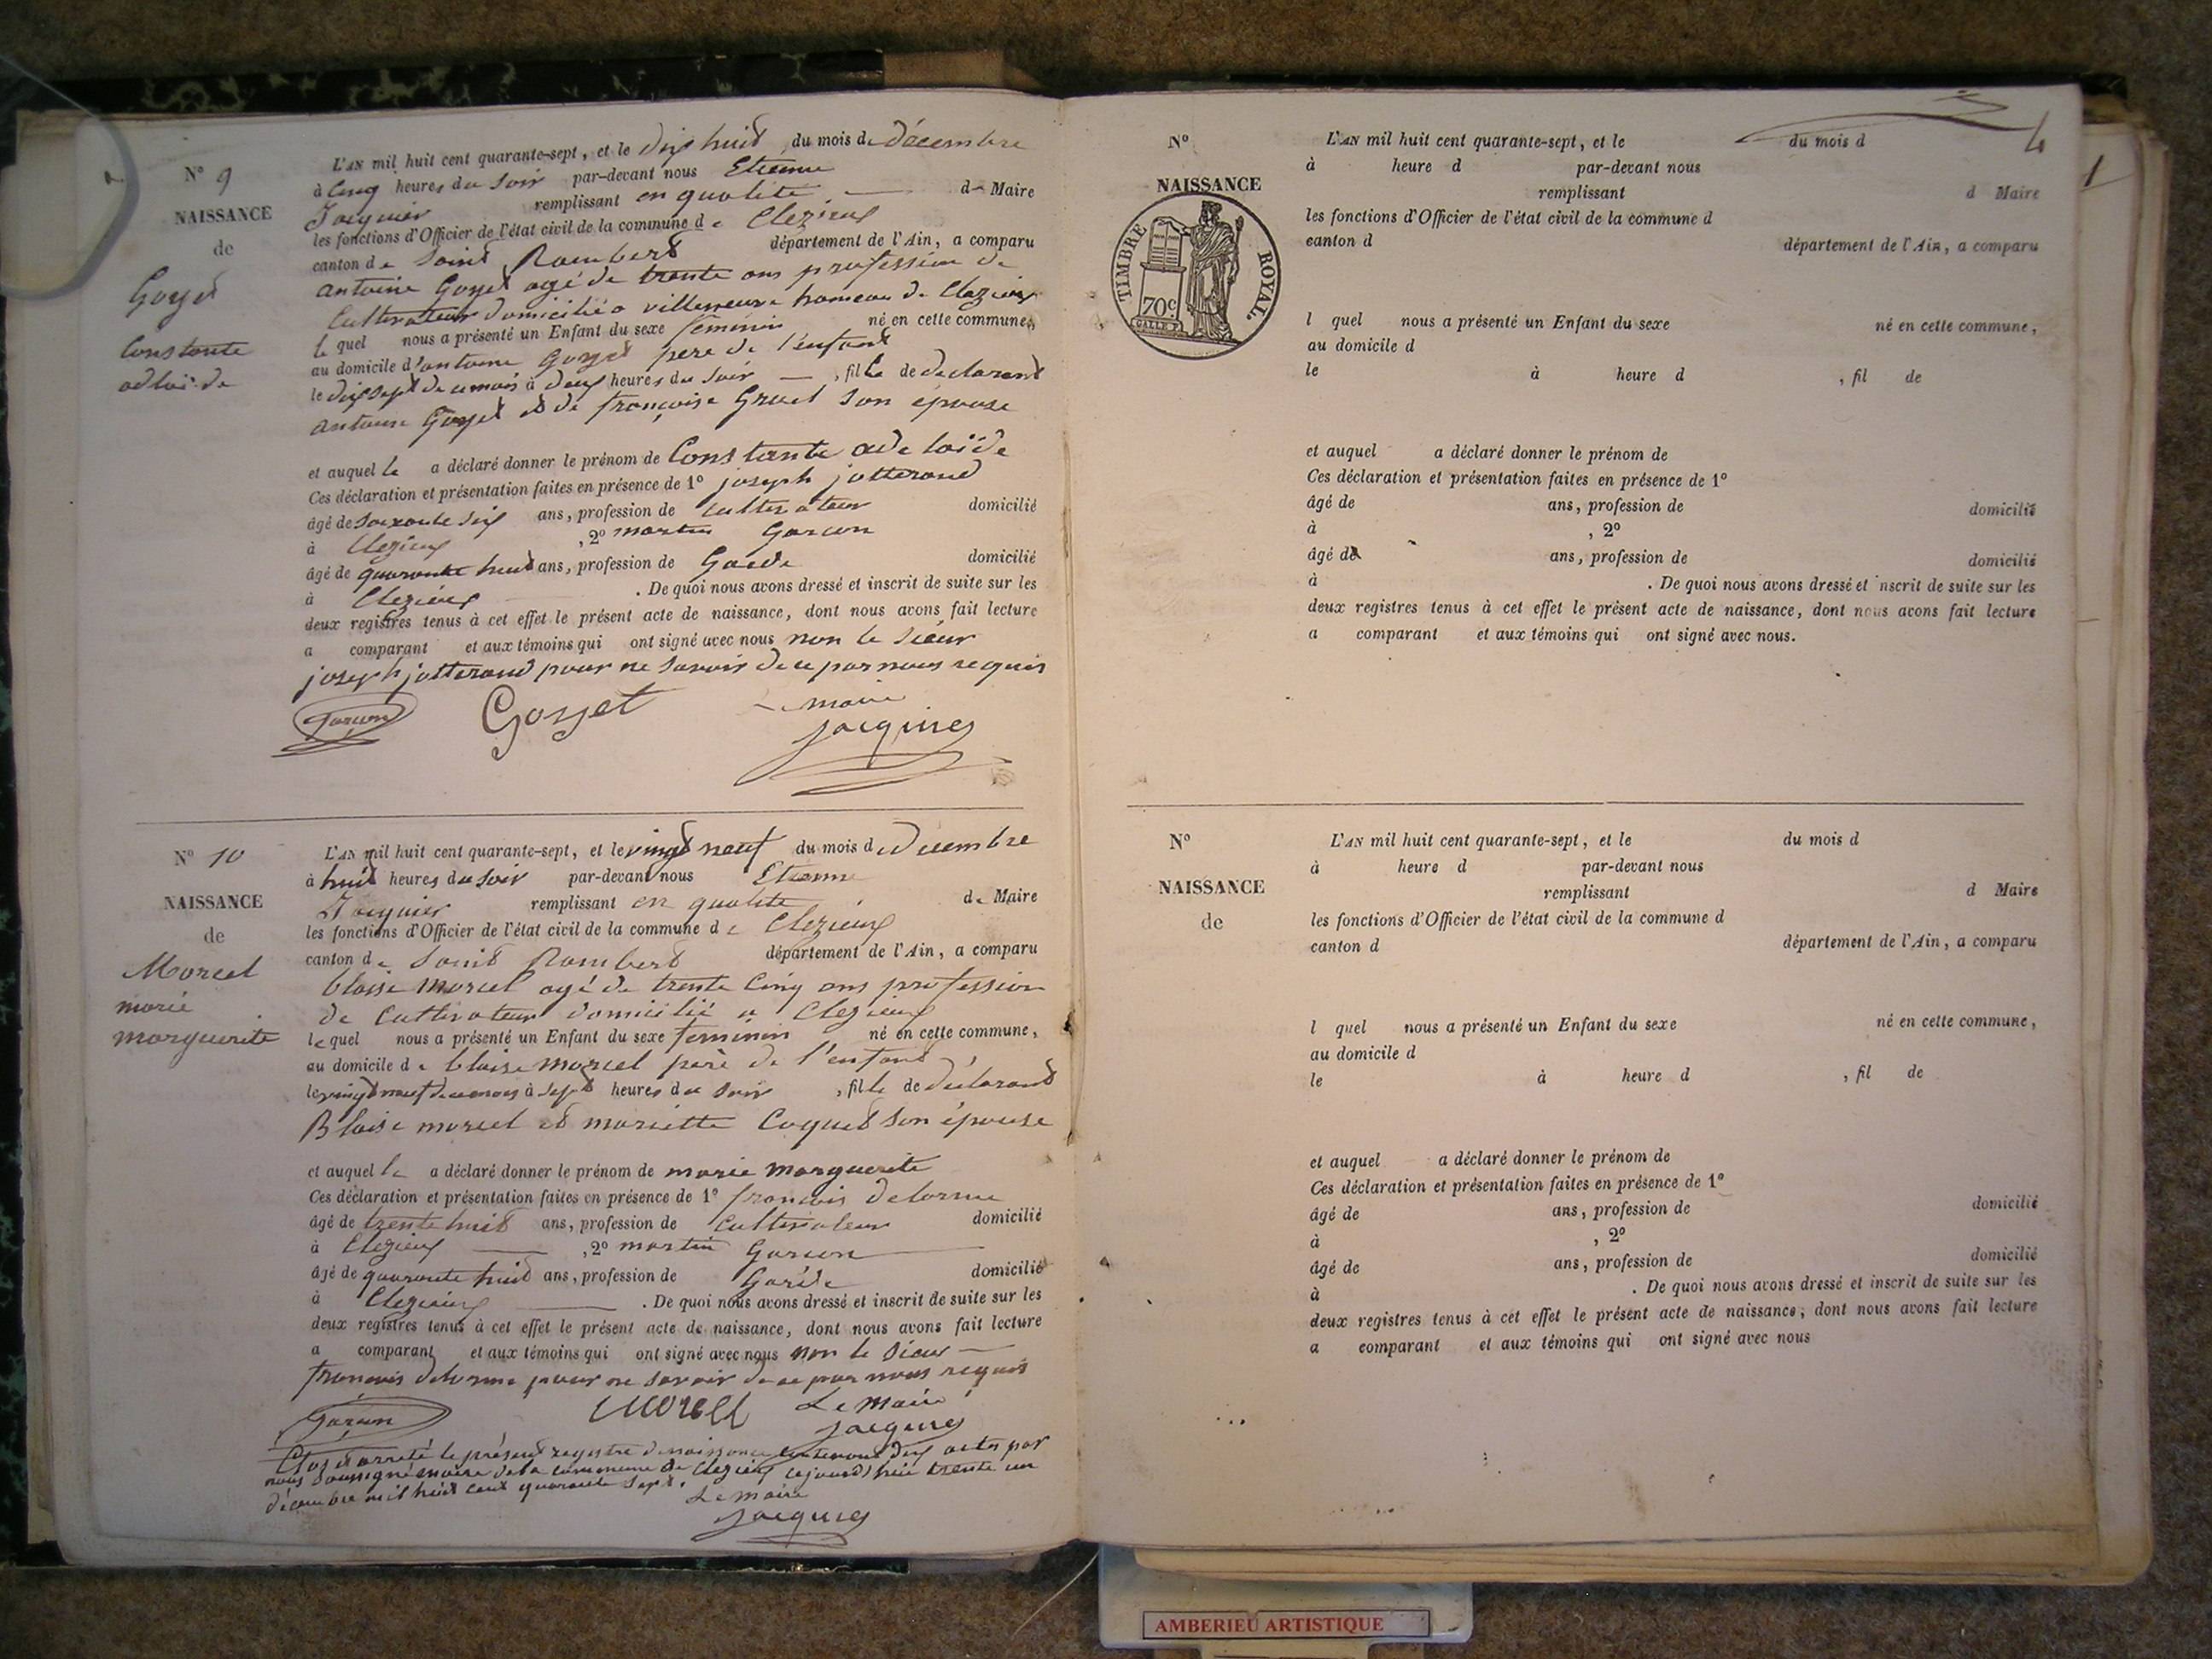 N° 9
NAISSANCE
de
Goyet
Constante
adloï.de
L'AN mil huit cent quarante-sept, et le dix huit du mois de décembre
à Cinq heures du Soir par-devant nous Etienne
Jacquier remplissant en qualité de Maire
les fonctions d'Officier de l'état civil de la commune de Clezieux
canton de Saint Rambert département de l'Ain, a comparu
antoine Goyet agé de trente ans profession de
Cultivateur domicilié a villeneuve hameau de Clezieux
le quel nous a présenté un Enfant du sexe feminin né en cette commune,
au domicile d'antoine Goyet pere de l'enfant
le dix sept de ce mois à deux heures du Soir , fille de declarant
antoine Goyet et de françoise Gruel son épouse
et auquel le a déclaré donner le prénom de Constante ade laïde
Ces déclaration et présentation faites en présence de 1° joseph jotterand
âgé de Soixante Six ans, profession de Cultivateur domicilié
à Clezieux , 2° martin Garcon
âgé de quarante huit ans, profession de Garde domicilié
à Clezieux . De quoi nous avons dressé et inscrit de suite sur les
deux registres tenus à cet effet le présent acte de naissance, dont nous avons fait lecture
a comparant et aux témoins qui ont signé avec nous non le Sieur
joseph jotterand pour ne savoir de ce par nous requis
Garcon Goyet Le maire
Jacquier
N° 10
NAISSANCE
de
Morcel
marie
marguerite
L'AN mil huit cent quarante-sept, et le vingt neuf du mois de decembre
à huit heures du Soir par-devant nous Etienne
Jacquier remplissant en qualité de Maire
les fonctions d'Officier de l'état civil de la commune de Clezieux
canton de Saint Rambert département de l'Ain, a comparu
blaise morcel agé de trente Cinq ans profession
de Cultivateur domicilié a Clezieux
le quel nous a présenté un Enfant du sexe feminin né en cette commune,
au domicile de blaise morcel père de l'enfant
le vingt neuf de ce mois à Sept heures du Soir , fille de déclarant
Blaise morcel et mariette Coquet son épouse
et auquel le a déclaré donner le prénom de marie marguerite
Ces déclaration et présentation faites en présence de 1° francois delorme
âgé de trente huit ans, profession de Cultivateur domicilié
à Clezieux , 2° martin Garcon
âgé de quarante huit ans, profession de Garde domicilié
à Clezieux . De quoi nous avons dressé et inscrit de suite sur les
deux registres tenus à cet effet le présent acte de naissance, dont nous avons fait lecture
a comparant et aux témoins qui ont signé avec nous non le Sieur
francois delorme pour ne savoir de ce par nous requis
Garcon Morcel Le maire
Jacquier
Clos et arreté le présent registre de naissance contenant dix actes par
nous soussigné maire de la commune de Clezieux cejourd'hui trente un
décembre mil huit cent quarante Sept.
Le maire
Jacquier
4
1
N°
NAISSANCE
TIMBRE ROYAL
70c
L'AN mil huit cent quarante-sept, et le du mois d
à heure d par-devant nous
remplissant d Maire
les fonctions d'Officier de l'état civil de la commune d
canton d département de l'Ain, a comparu
l quel nous a présenté un Enfant du sexe né en cette commune,
au domicile d
le à heure d , fil de
et auquel a déclaré donner le prénom de
Ces déclaration et présentation faites en présence de 1°
âgé de ans, profession de domicilié
à , 2°
âgé de ans, profession de domicilié
à . De quoi nous avons dressé et inscrit de suite sur les
deux registres tenus à cet effet le présent acte de naissance, dont nous avons fait lecture
a comparant et aux témoins qui ont signé avec nous.
N°
NAISSANCE
de
L'AN mil huit cent quarante-sept, et le du mois d
à heure d par-devant nous
remplissant d Maire
les fonctions d'Officier de l'état civil de la commune d
canton d département de l'Ain, a comparu
l quel nous a présenté un Enfant du sexe né en cette commune,
au domicile d
le à heure d , fil de
et auquel a déclaré donner le prénom de
Ces déclaration et présentation faites en présence de 1°
âgé de ans, profession de domicilié
à , 2°
âgé de ans, profession de domicilié
à . De quoi nous avons dressé et inscrit de suite sur les
deux registres tenus à cet effet le présent acte de naissance, dont nous avons fait lecture
a comparant et aux témoins qui ont signé avec nous
AMBERIEU ARTISTIQUE